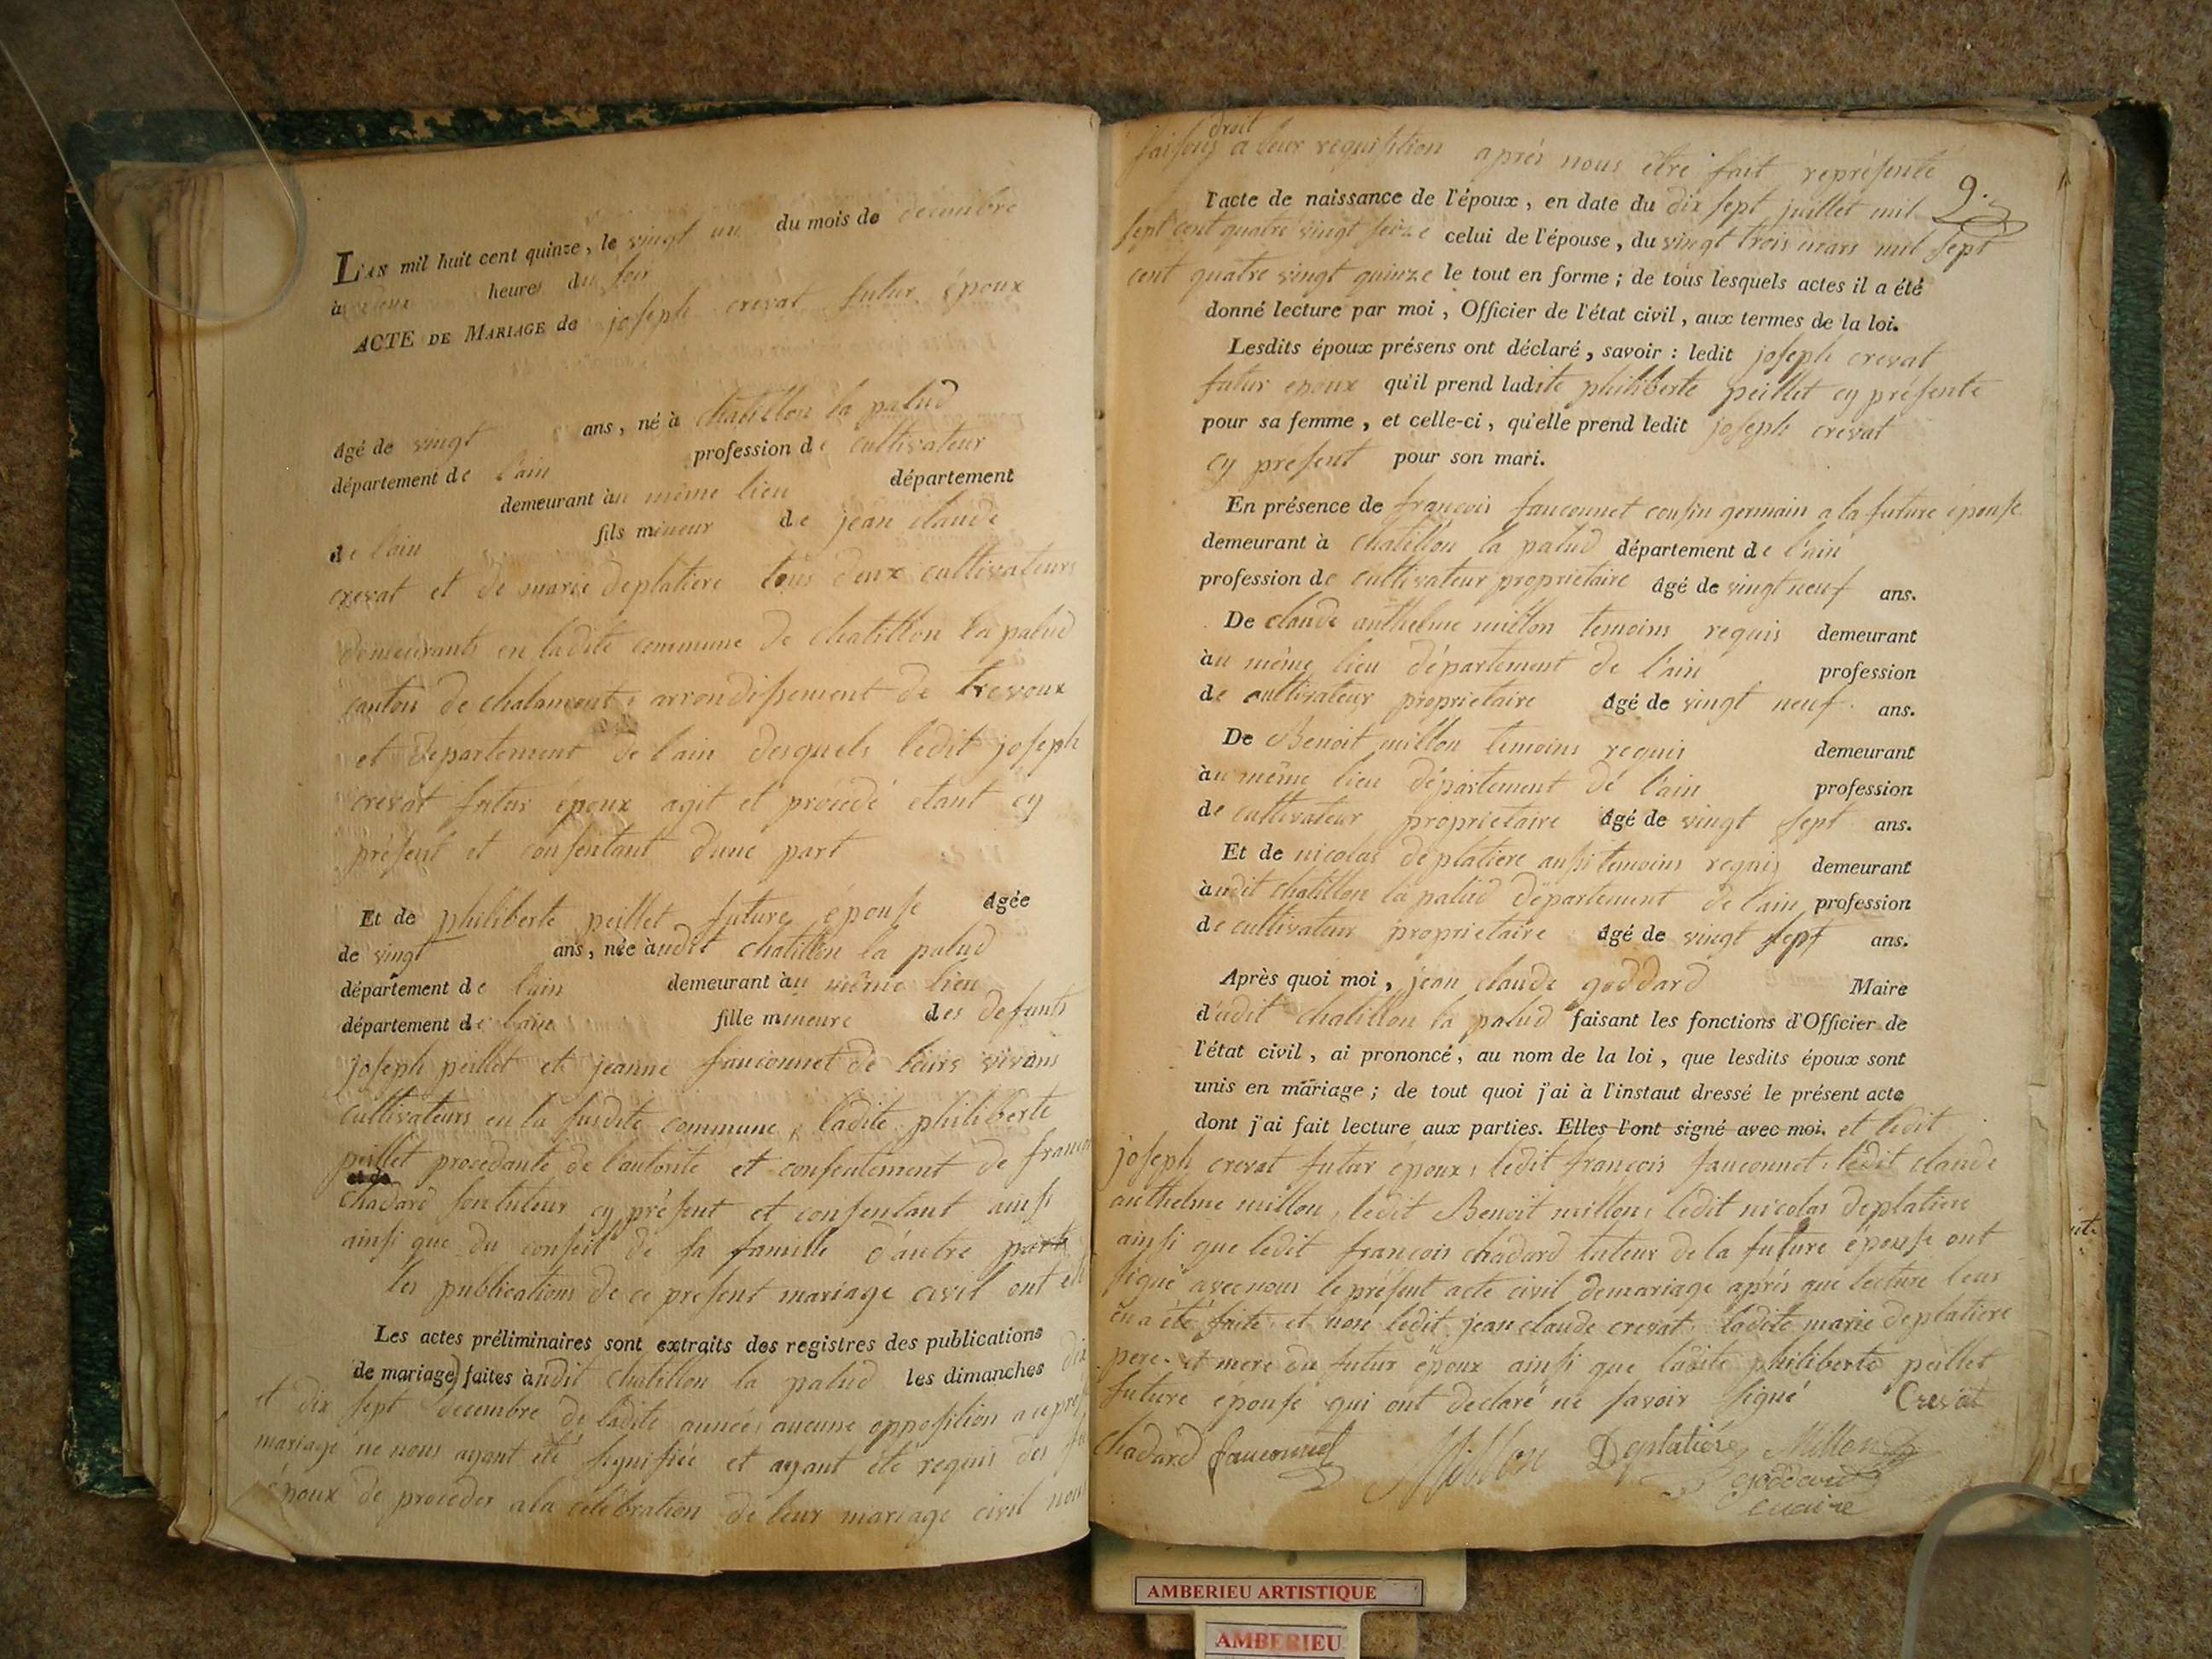 L'AN mil huit cent quinze, le vingt un du mois de decembre
à deux heures du soir
ACTE DE MARIAGE de joseph crevat futur époux
âgé de vingt ans, né à chatillon la palud
département de l'ain profession de cultivateur
demeurant àu même lieu département
de l'ain fils mineur de jean claude
crevat et de marie deplatiere tous deux cultivateurs
demeurants en ladite commune de chatillon la palud
canton de chalamont, arrondissement de trevoux
et departement de l'ain desquels ledit joseph
crevat futur epoux agit et procédé etant cy
présent et consentant d'une part
Et de philiberte peillet future épouse âgée
de vingt ans, née àudit chatillon la palud
département de l'ain demeurant àu même lieu
département de l'ain fille mineure des defunts
joseph peillet et jeanne fauconnet de leurs vivans
cultivateurs en la susdite commune, ladite philiberte
peillet procedante de l'autorité et consentement de
chadard son tuteur cy présent et consentant
ainsi que du conseil de sa famille d'autre part
les publications de ce present mariage civil ont
Les actes préliminaires sont extraits des registres des publications
de mariage) faites àudit chatillon la palud les dimanches
et dix sept decembre de ladite année, aucune opposition
mariage ne nous ayant été signifiée et ayant été requis des
époux de proceder a la célébration de leur mariage civil nous
faisons droit a leur requisition aprés nous etre fait représenté
l'acte de naissance de l'époux, en date du dix sept juillet mil 9.
sept cent quatre vingt seize celui de l'épouse, du vingt trois mars mil sept
cent quatre vingt quinze le tout en forme; de tous lesquels actes il a été
donné lecture par moi, Officier de l'état civil, aux termes de la loi.
Lesdits époux présens ont déclaré, savoir : ledit joseph crevat
futur epoux qu'il prend ladite philiberte peillet cy présente
pour sa femme, et celle-ci, qu'elle prend ledit joseph crevat
cy present pour son mari.
En présence de françois fauconnet cousin germain a la future épouse
demeurant à chatillon la palud département de l'ain
profession de cultivateur proprietaire âgé de vingt neuf ans.
De claude anthelme millon temoins requis demeurant
àu même lieu département de l'ain profession
de cultivateur proprietaire âgé de vingt neuf ans.
De Benoit millon temoins requis demeurant
àu même lieu département de l'ain profession
de cultivateur proprietaire âgé de vingt sept ans.
Et de nicolas deplatiere aussi temoins requis demeurant
àudit chatillon la palud département de l'ain profession
de cultivateur proprietaire âgé de vingt sept ans.
Après quoi moi, jean claude goddard Maire
dudit chatillon la palud faisant les fonctions d'Officier de
l'état civil, ai prononcé, au nom de la loi, que lesdits époux sont
unis en mariage; de tout quoi j'ai à l'instaut dressé le présent acte
dont j'ai fait lecture aux parties. Elles l'ont signé avec moi. et ledit
joseph crevat futur époux, ledit françois fauconnet, ledit claude
anthelme millon, ledit Benoit millon, ledit nicolas deplatiere
ainsi que ledit francois chadard tuteur de la future épouse ont
signé avec nous le présent acte civil de mariage aprés que lecture leur
en a été faite et non ledit jean claude crevat, ladite marie deplatiere
pere et mere du futur époux ainsi que ladite philiberte peillet
future épouse qui ont declaré ne savoir signé Crevat
chadard fauconnet Millon Deplatiére Millon
goddard
maire
AMBERIEU ARTISTIQUE
AMBERIEU